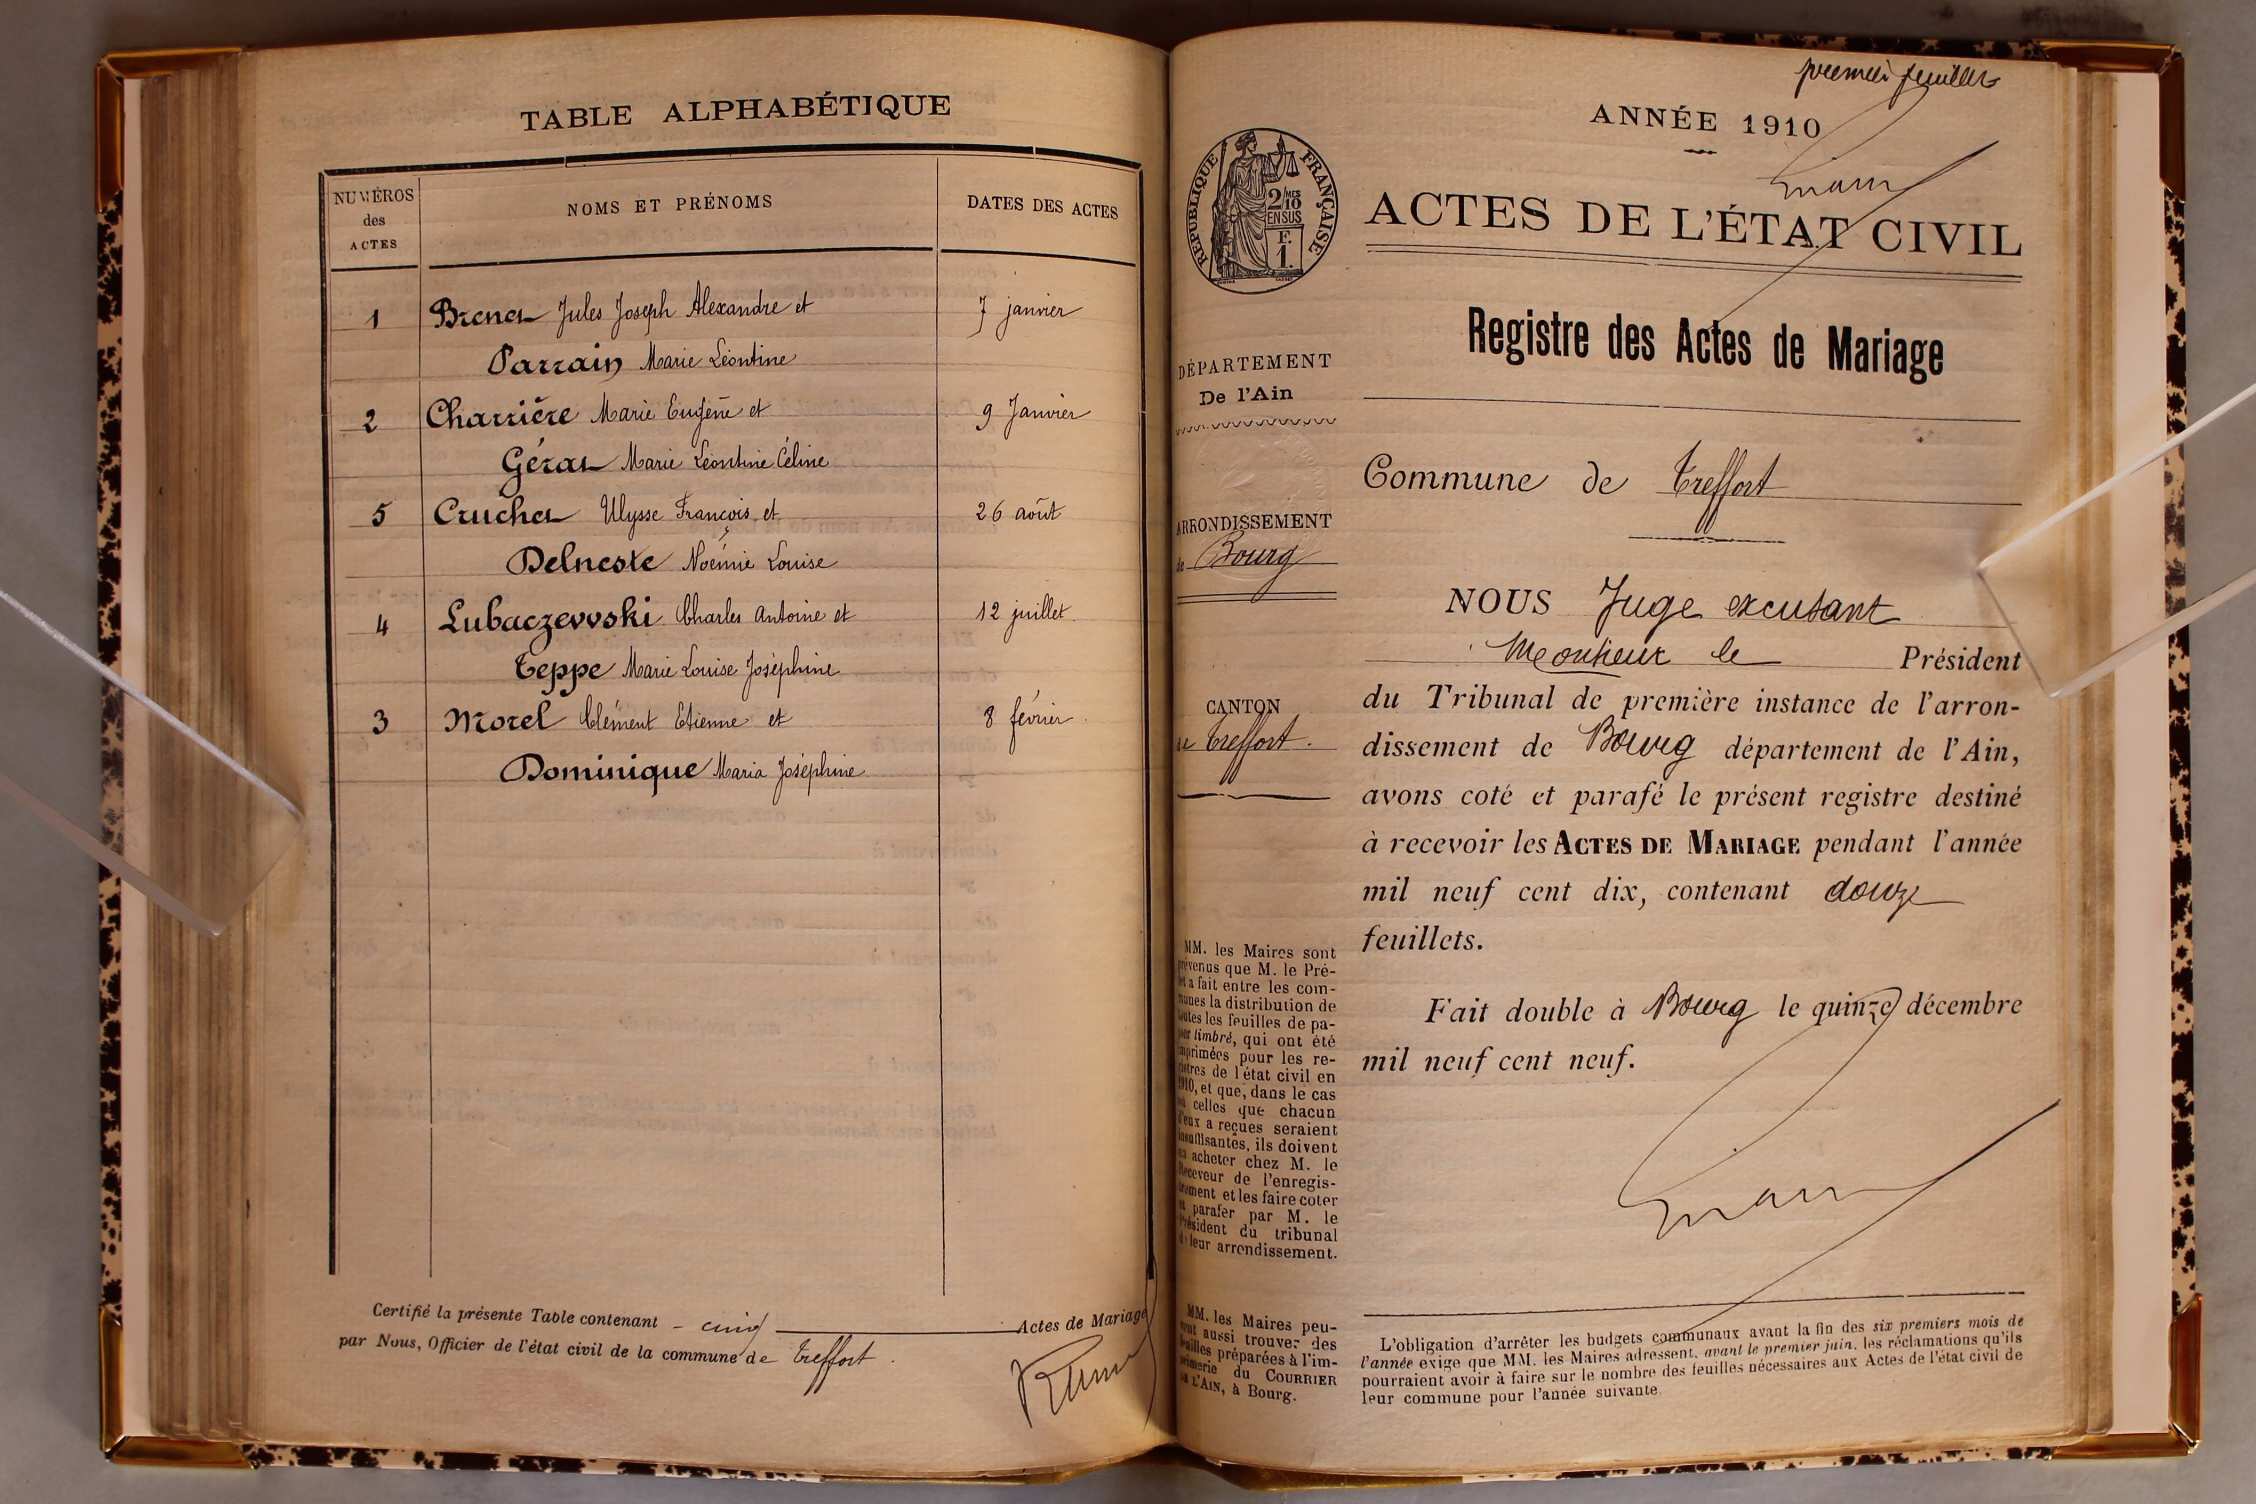 TABLE ALPHABÉTIQUE
NUMÉROS
des
ACTES
NOMS ET PRÉNOMS
DATES DES ACTES
1 Brenet Jules Joseph Alexandre et 7 janvier
Parrain Marie Léontine
2 Charrière Marie Eugène et 9 Janvier
Gérat Marie Léontine Céline
5 Cruchet Ulysse François et 26 août
Delneste Noémie Louise
4 Lubaczewski Charles Antoine et 12 juillet
Teppe Marie Louise Joséphine
3 Morel Clément Etienne et 8 février
Dominique Maria Joséphine
Certifié la présente Table contenant cinq Actes de Mariage
par Nous, Officier de l'état civil de la commune de Treffort
premier feuillet
ANNÉE 1910
RÉPUBLIQUE FRANÇAISE
2/10 MES
EN SUS
F.
1.
ACTES DE L'ÉTAT CIVIL
Registre des Actes de Mariage
DÉPARTEMENT
De l'Ain
ARRONDISSEMENT
de Bourg
CANTON
de Treffort.
MM. les Maires sont
prévenus que M. le Pré-
fet a fait entre les com-
munes la distribution de
toutes les feuilles de pa-
pier timbré, qui ont été
imprimées pour les re-
gistres de l'état civil en
1910, et que, dans le cas
où celles que chacun
d'eux a reçues seraient
insuffisantes, ils doivent
en acheter chez M. le
Receveur de l'enregis-
trement et les faire coter
et parafer par M. le
Président du tribunal
de leur arrondissement.
MM. les Maires peu-
vent aussi trouver des
feuilles préparées à l'im-
primerie du COURRIER
DE L'AIN, à Bourg.
Commune de Treffort
NOUS Juge excusant
Monsieur le Président
du Tribunal de première instance de l'arron-
dissement de Bourg département de l'Ain,
avons coté et parafé le présent registre destiné
à recevoir les ACTES DE MARIAGE pendant l'année
mil neuf cent dix, contenant douze
feuillets.
Fait double à Bourg le quinze décembre
mil neuf cent neuf.
L'obligation d'arrêter les budgets communaux avant la fin des six premiers mois de
l'année exige que MM. les Maires adressent, avant le premier juin, les réclamations qu'ils
pourraient avoir à faire sur le nombre des feuilles nécessaires aux Actes de l'état civil de
leur commune pour l'année suivante.